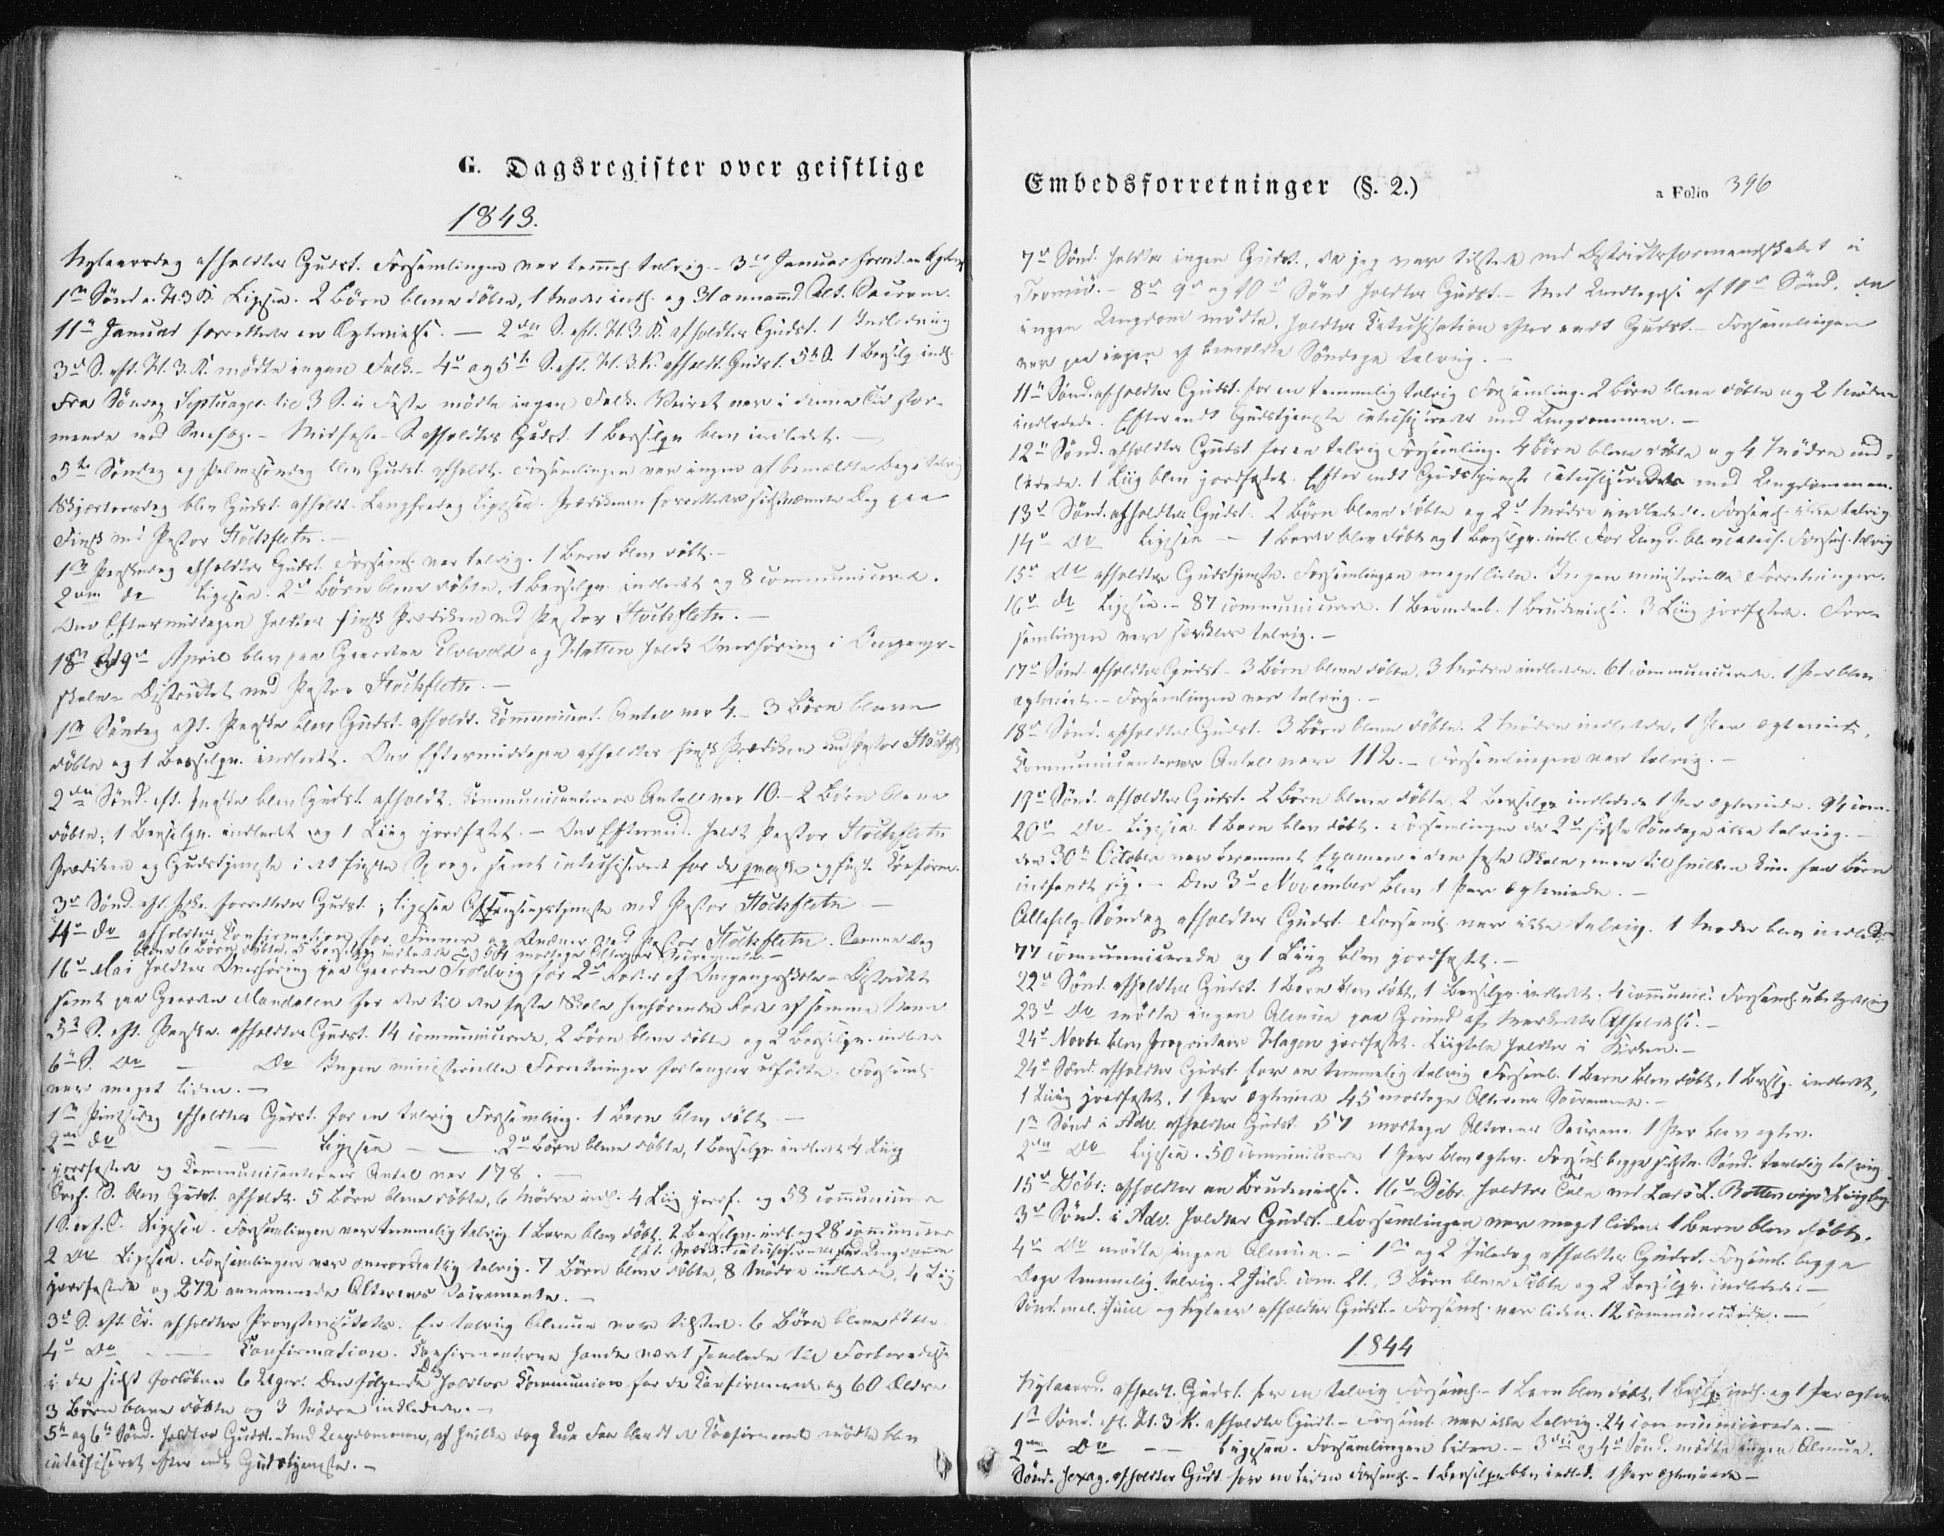 G. Dagsregister over geistlige
1843.
Nytaarsdag afholdtes Gudst. Forsamlingen var temmel. talrig. – 3die Januar forret. en
1ste Sønd. e. H. 3 K. Ligesaa. 2 Børn bleve døbte, 1 Moder indl. og 3 annamd. Alt. Sacram.
11te Januar forrettedes en Ægtevielse. — 2den S. eft. H. 3. K. afholdtes Gudst. 1 Indledning
3die S. eft. H. 3. K. mødte ingen Folk. – 4de og 5te S. eft. H. 3. K. afholdt. Gudst. 5te S. 1 Barselq. indl.
Fra Søndag Septuages. til 3 S. i Faste mødte ingen Folk. Veiret var i denne Tid stor-
mende med Snefog. – Midfaste S. afholdtes Gudst. 1 Barselqv. blev indledet. —
5te Søndag og Palmesøndag blev Gudst. afholdt. Forsamlingen var ingen af bemeldte Dage talrig
Skjærtorsdag blev Gudst. afholdt. Langfredag Ligesaa. Prædikenen forrettedes sidstnævnte Dag paa
Finsk ved Pastor Stockfleth. —
1ste Paaskedag afholdtes Gudst. Forsaml. var talrig. 1 Barn blev døbt. –
2den do Ligesaa. 2de Børn bleve døbte, 1 Barselqv. indledt og 8 communicerede.
Om Eftermiddagen holdtes finsk Prædiken ved Pastor Stockfleth. —
18de og 19de April blev paa Gaardene Elvevold og Hatten holdt Overhøring i Omgangs-
skole-Districtet ved Pastor Stockfleth. —
1ste Søndag eft. Paaske blev Gudst. afholdt. Communicant. Antal var 4. – 3 Børn bleve
døbte og 1 Barselqv. indledet. Om Eftermiddagen afholdtes finsk Prædiken ved Pastor Stockfleth
2den Sønd. eft. Paaske blev Gudst. afholdt. Communicanternes Antal var 10. – 2 Børn bleve
døbte; 1 Barselqv. indledet og 1 Liig jordfæstet. — Om Eftermid. holdt Pastor Stockfleth
Prædiken og Gudstjeneste i det finske Sprog, samt catechiserede for de qvænske og finske Confirm.
3die Sønd. eft. Paaske forrettedes Gudst.; ligesaa Aftensangstjeneste ved Pastor Stockfleth —
4de do afholdtes Confirmation for Finner og Qvæner ved Pastor Stockfleth. Samme Dag
bleve 6 Børn døbte, 5 Barselqv. indledte og 64 modtoge Alterens Sacramente —
16de Mai holdtes Overhøring paa Gaarden Troldvig for 2de Roder af Omgangsskole-Districtet
samt paa Gaarden Mandalen for den til den faste Skole henhørende Rode af samme Navn
5te S. eft. Paaske. afholdtes Gudst. 14 communicerede, 2 Børn bleve døbte og 2 Barselqv. indledte
6te S. do — do Ingen ministerielle Forretninger forlangtes udførte. Forsaml.
var meget liden. —
1ste Pintsedag afholdtes Gudst. for en talrig Forsamling. 1 Barn blev døbt. —
2den do — Ligesaa — 2de Børn bleve døbte, 1 Barselqv. indledet 4 Liig
jordfæstede og Communicanternes Antal var 178. —
Tref. S. blev Gudst. afholdt. 5 Børn bleve døbte, 6 Mødre indl. 4 Liig jordf. og 58 communicer
1 S. e. f. T. Ligesaa. Forsamlingen var temmelig talrig 1 Barn blev døbt. 2 Barselqv. indl. og 28 communicer
Eft. Gudst. catechiseredes med Ungdommen
2 do Ligesaa. Forsamlingen var overordentlig talrig. 7 Børn bleve døbte, 8 Mødre indledede, 4 Liig
jordfæstede og 272 annammede Alterens Sacramente. —
3die S. eft. Tr. afholdtes Provstevisitats. En talrig Almue var tilstede. 6 Børn bleve døbte
4de do — Confirmation. Confirmanterne havde været samlede til Forberedelse
i de sidst forløbne 6 Uger. Den følgende Dag holdtes Communion for de Confirmerede og 60 Ældre
3 Børn bleve døbte og 3 Mødre indledede. —
5te og 6te Sønd. holdtes Gudst. – Med Ungdommen, af hvilke dog kun Faa blandt de Confirmerede mødte blev
catechiseret efter endt Gudstjeneste. —
Embedsforretninger (§. 2.)
a Folio 396
7de Sønd. holdtes ingen Gudst., da jeg var tilstede ved Districtsformandskabet i
Tromsø. – 8de 9de og 10de Sønd holdtes Gudst. – Med Undtagelse af 10de Sønd. da
ingen Ungdom mødte, holdtes Catechisation efter endt Gudst. – Forsamlingen
var paa ingen af bemeldte Søndage talrig. —
11te Sønd. afholdtes Gudst. for en temmelig talrig Forsamling. 2 Børn bleve døbte og 2 Mødre
indledede. Efter endt Gudstjeneste catechiseredes med Ungdommen. —
12te Sønd. afholdtes Gudst for en talrig Forsamling. 4 Børn bleve døbte og 4 Mødre ind-
ledede. 1 Liig blev jordfæstet. Efter endt Gudstjeneste catechiseredes med Ungdommen.
13de Sønd. afholdtes Gudst. 2 Børn bleve døbte og 2de Mødre indledede. Forsaml. ikke talrig
14de do Ligesaa — 1 Barn blev døbt og 1 Barselqv. indl. For Ungd. blev catech. Forsaml. talrig
15de do afholdtes Gudstjeneste. Forsamlingen meget liden. Ingen ministerielle Forretninger.
16de do Ligesaa. – 87 communicerede. 1 Barnedaab. 1 Brudevielse. 3 Liig jordfæstede. For-
samlingen var særdeles talrig. —
17de Sønd. afholdtes Gudst – 3 Børn bleve døbte, 3 Mødre indledede. 61 communicerede. 1 Par blev
ægteviet. – Forsamlingen var talrig. —
18de Sønd. afholdtes Gudst. 3 Børn bleve døbte. 2 Mødre indledede, 1 Par ægteviet,
Communicanternes Antal var 112. – Forsamlingen var talrig. —
19de Sønd. afholdtes Gudst. 2 Børn bleve døbte, 2 Barselqv. indledede 1 Par ægteviede. 94 com.
20de do Ligesaa. 1 Barn blev døbt. Forsamlingen de 2de sidste Søndage ikke talrig. —
den 30te October var berammet Examen i den faste Skole, men til hvilken kun faa Børn
indfandt sig. – Den 3die November blev 1 Par ægteviede. —
Allehelg. Søndag afholdtes Gudst – Forsaml. var ikke talrig. 1 Moder blev indledet
77 communicerede og 1 Liig blev jordfæstet. —
22de Sønd. afholdtes Gudst. 1 Barn blev døbt, 1 Barselqv. indledet. 4 communic. Forsaml. ubetydelig
23de do mødte ingen Almue paa Grund af Markedets Afholdelse. —
24de Novbr. blev Proprietair Hagen jordfæstet. Liigtale holdtes i Kirken. —
24de Sønd. afholdtes Gudst. for en temmelig talrig Forsaml. 1 Barn blev døbt, 1 Barselq. indledt,
1 Liig jordfæstet, 1 Par ægteviede 45 modtoge Alterens Sacramente. —
1ste Sønd. i Adv. afholdtes Gudst. 57 modtoge Alterens Sacram. 1 Par blev ægtev.
2den do Ligesaa. 50 communicerede 1 Par blev ægtev. Forsaml. begge sidste Sønd. temelig talrig.
15de Debr: afholdtes en Brudevielse. 16de Debr. holdtes Tale ved Lars L. Rottenvigs Liigbeg.
3die Sønd. i Adv. holdtes Gudst. – Forsamlingen var meget liden. 1 Barn blev døbt.
4de do mødte ingen Almue. – 1ste og 2 Juledag afholdtes Gudst. Forsaml. begge
Dage temmelig talrig. 2 Juld. com. 21., 3 Børn bleve døbte og 2 Barselqv. indledede. —
Sønd. mel. Juul og Nytaar afholdtes Gudst. – Forsaml. var liden. 12 communicerede. —
1844
Nytaarsd. afholdt. Gudst. for en talrig Forsaml. – 1 Barn blev døbt, 1 Barselqv. indl. og 1 Par ægtev.
1ste Sønd. eft. H. 3 K. afholdtes Gudst. – Forsaml. var ikke talrig. 24 communicerede. —
2den do — Ligesaa. Forsamlingen liden. – 3die og 4de Sønd. mødte ingen Almue.
Sønd. Sexag. afholdtes Gudst for en liden Forsaml. – 1 Barselqv. blev indled. 1 Par ægteviede —